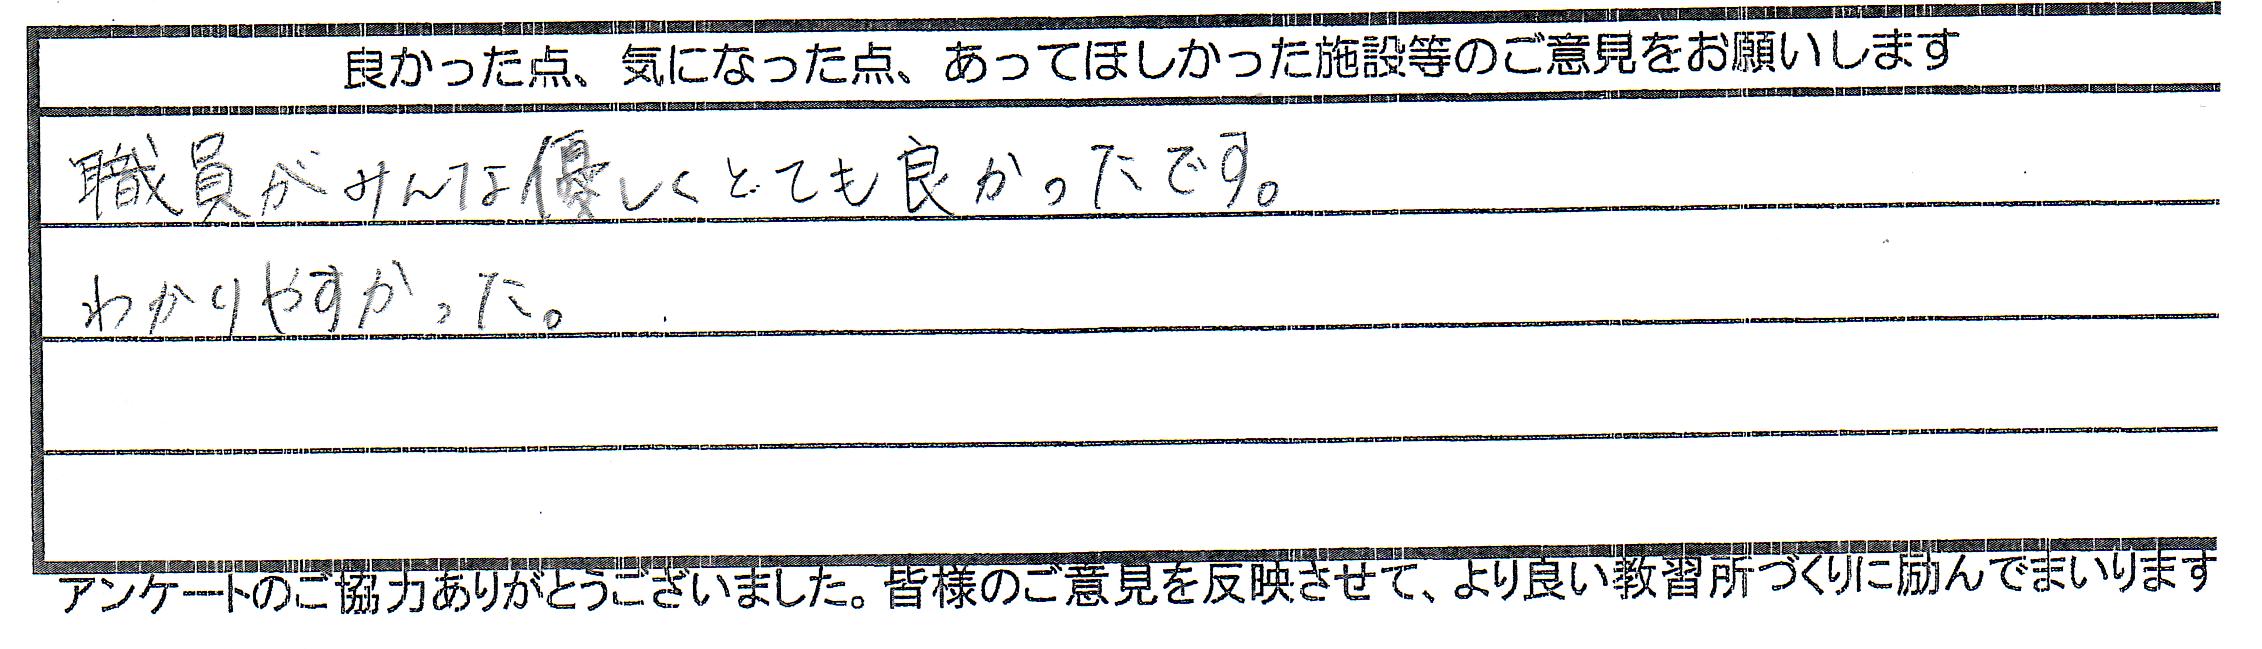 良かった点、気になった点、あってほしかった施設等のご意見をお願いします
職員がみんな優しくとても良かったです。
わかりやすかった。
アンケートのご協力ありがとうございました。皆様のご意見を反映させて、より良い教習所づくりに励んでまいります